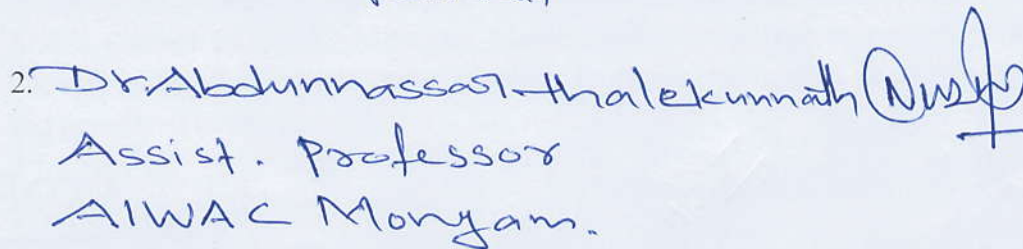 2. Dr. Abdunnassar thalekunnath
Assist. Professor
AIWAC Mongam.